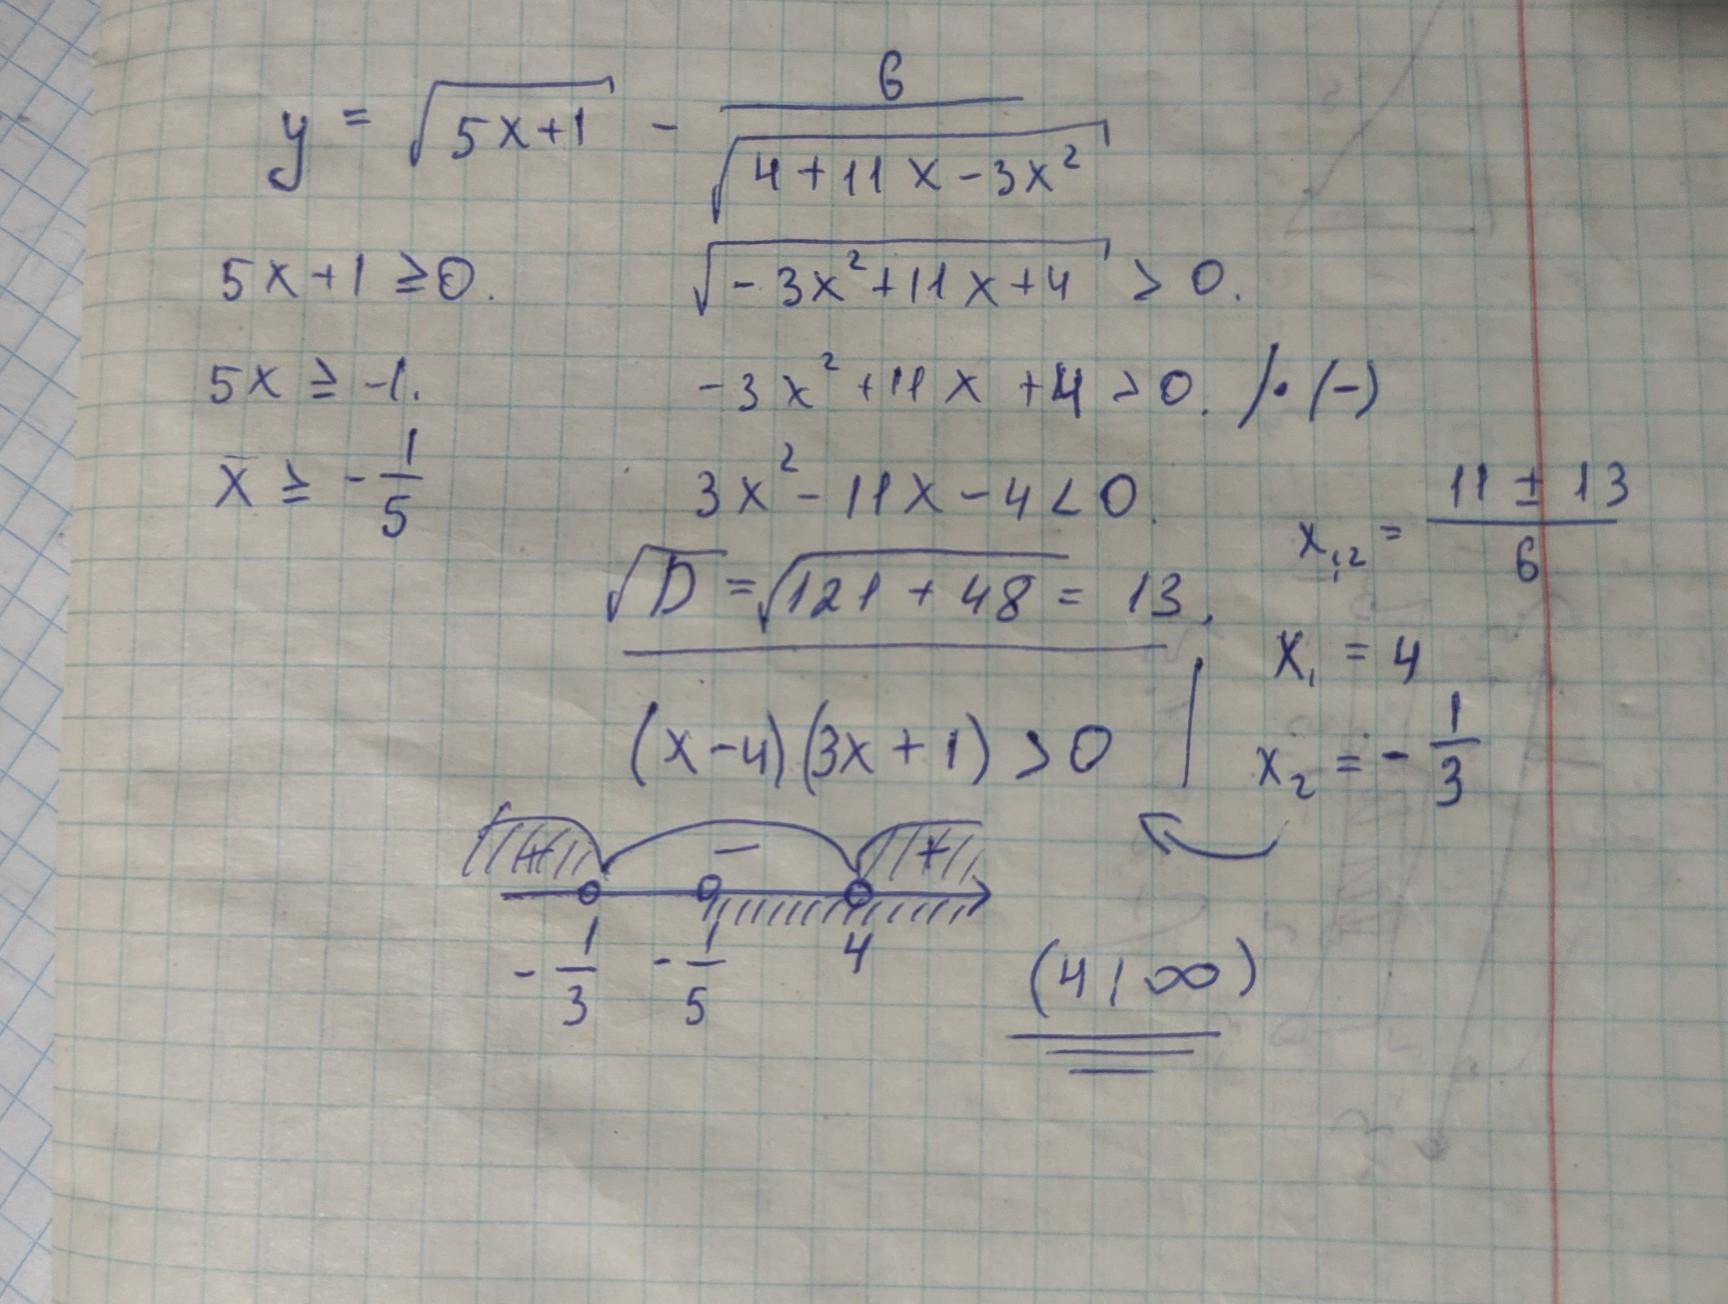 y = √(5x+1) - 6/√(4+11x-3x²)
5x+1 ≥ 0. √(-3x²+11x+4) > 0.
5x ≥ -1. -3x²+11x+4 > 0. /·(-)
x ≥ -1/5 3x²-11x-4 < 0. x₁,₂ = (11±13)/6
√D = √(121+48) = 13. x₁ = 4
(x-4)(3x+1) > 0 x₂ = -1/3
+ - +
-1/3 -1/5 4 (4; ∞)